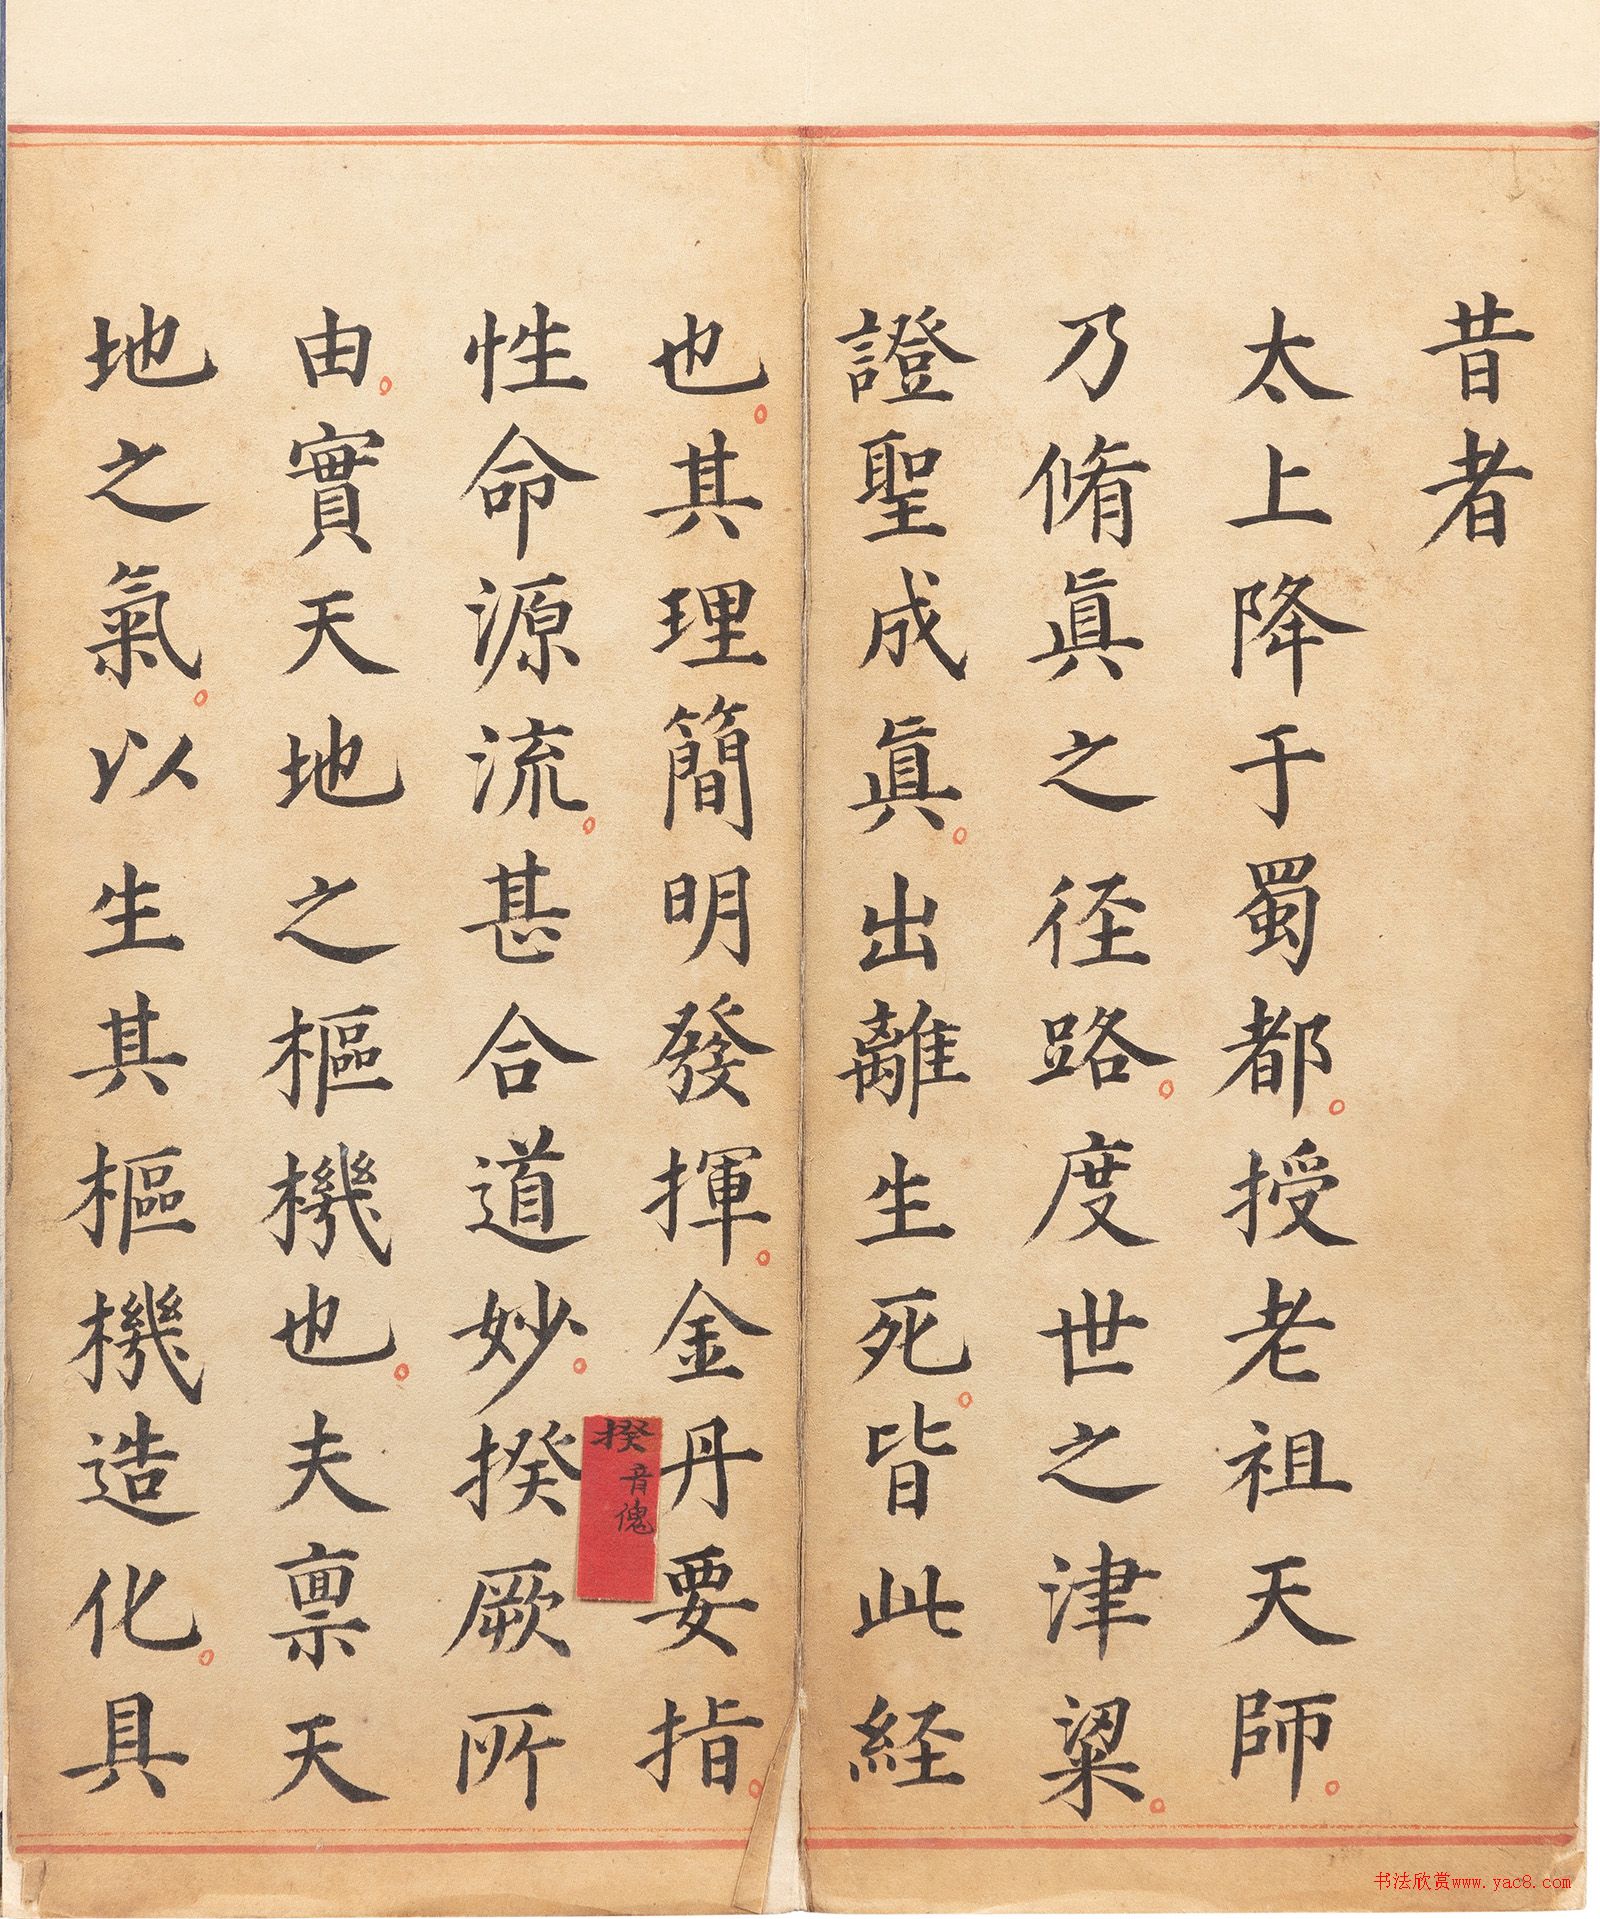 昔者
太上降于蜀都。授老祖天師。
乃脩眞之徑路。度世之津梁。
證聖成眞。出離生死。皆此経
也。其理簡明發揮。金丹要指。
性命源流。甚合道妙。揆厥所
由。實天地之樞機也。夫禀天
地之氣。以生其樞機造化。具
揆
音傀
书法欣赏www.yac8.com